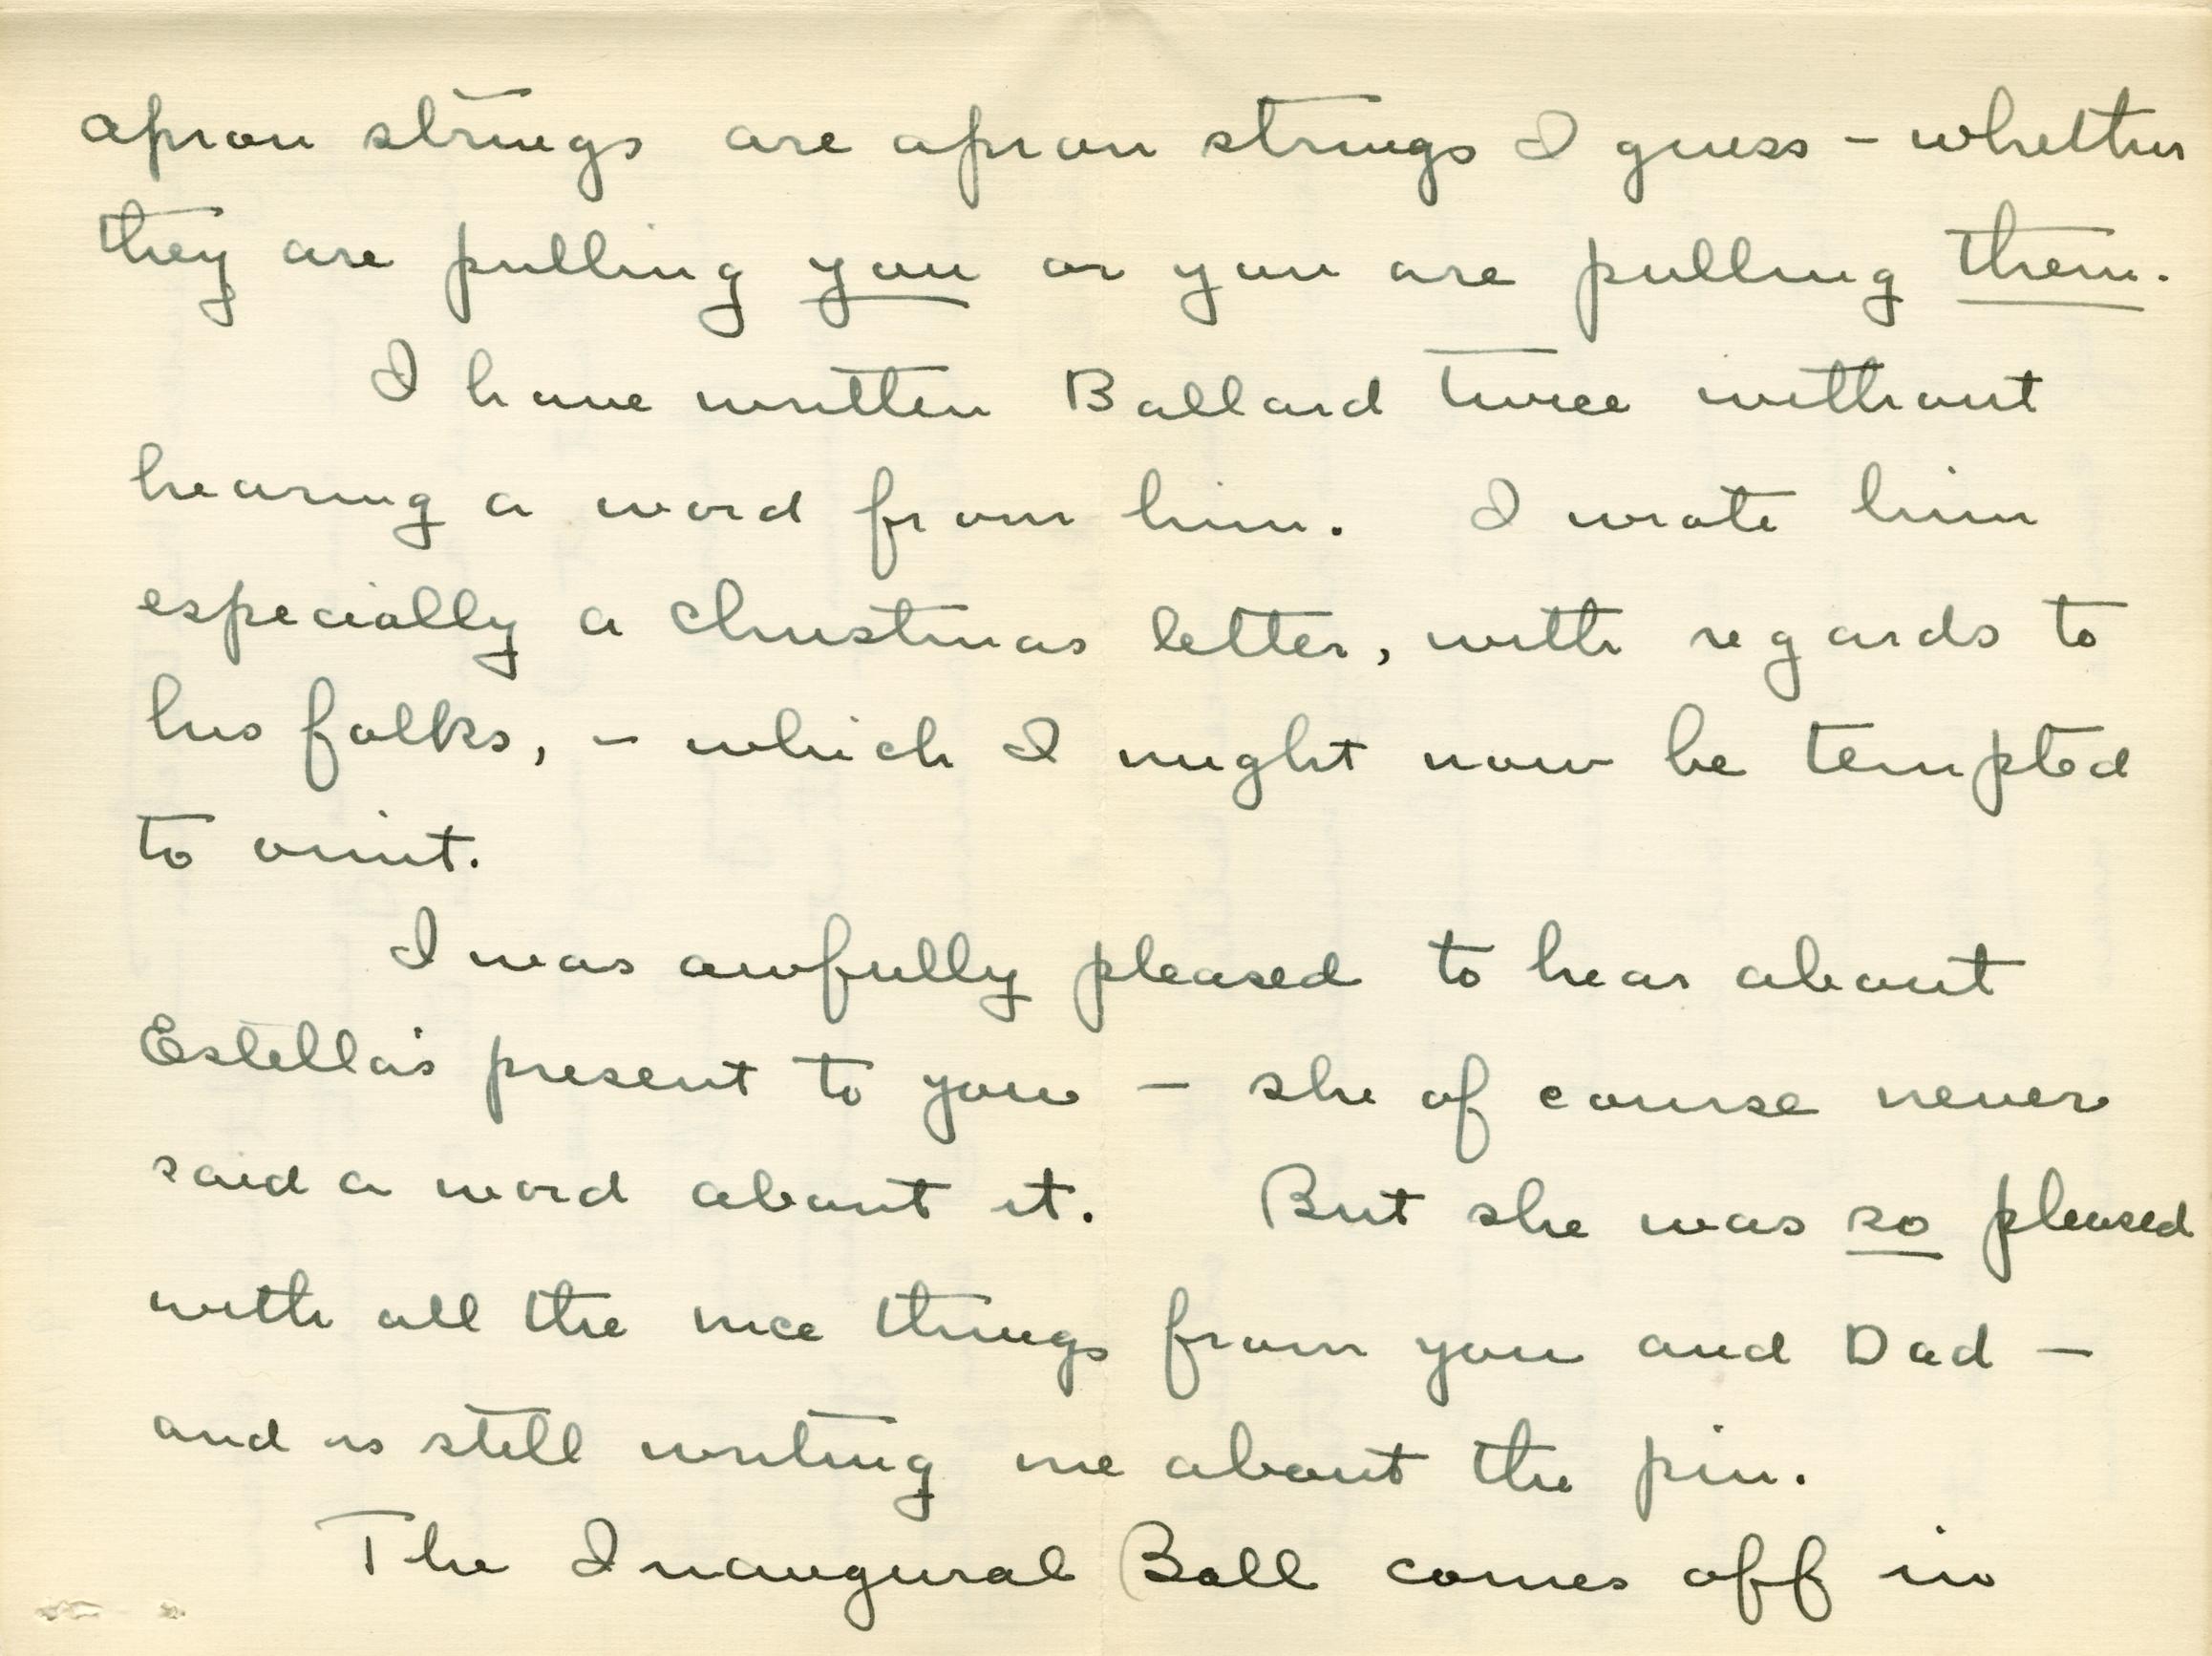 apron strings are apron strings I guess – whether
they are pulling you or you are pulling them.
I have written Ballard twice without
hearing a word from him. I wrote him
especially a Christmas letter, with regards to
his folks, – which I might now be tempted
to omit.
I was awfully pleased to hear about
Estella's present to you – she of course never
said a word about it. But she was so pleased
with all the nice things from you and Dad –
and is still writing me about the pin.
The Inaugural Ball comes off in